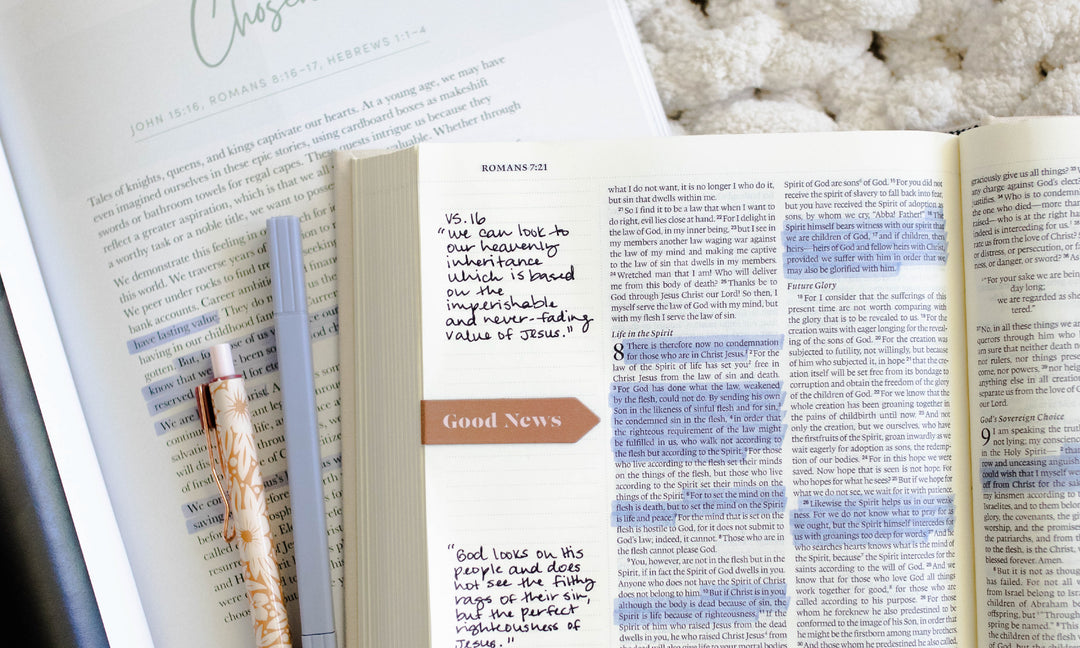 Chosen
JOHN 15:16, ROMANS 8:16–17, HEBREWS 1:1–4
Tales of knights, queens, and kings captivate our hearts. At a young age, we may have
even imagined ourselves in these epic stories, using cardboard boxes as makeshift
swords or bathroom towels for regal capes. These quests intrigue us because they
reflect a greater aspiration, which is that we all valuable. Whether through
a worthy task or a noble title, we want to posse
We demonstrate this feeling in o
this world. We traverse years of seeking
We peer under rocks to find tre financi
bank accounts. Career ambitio
have lasting value. They do Curren
having in our childhood fant
gotten. But, fo
know that we been so
reserved
We are
continu
salvation
will dis
of first
We co
saving before
called
resurre
and H
were
ROMANS 7:21
VS. 16
"we can look to
our heavenly
inheritance
which is based
on the
imperishable
and never-fading
value of Jesus."
Good News
"God looks on His
people and does
not see the filthy
rags of their sin,
but the perfect
righteousness of
Jesus."
what I do not want, it is no longer I who do it,
but sin that dwells within me.
21 So I find it to be a law that when I want to
do right, evil lies close at hand. 22 For I delight in
the law of God, in my inner being, 23 but I see in
my members another law waging war against
the law of my mind and making me captive
to the law of sin that dwells in my members.
24 Wretched man that I am! Who will deliver
me from this body of death? 25 Thanks be to
God through Jesus Christ our Lord! So then, I
myself serve the law of God with my mind, but
with my flesh I serve the law of sin.
Life in the Spirit
8 There is therefore now no condemnation
for those who are in Christ Jesus. 2 For the
law of the Spirit of life has set you free in
Christ Jesus from the law of sin and death.
3 For God has done what the law, weakened
by the flesh, could not do. By sending his own
Son in the likeness of sinful flesh and for sin,
he condemned sin in the flesh, 4 in order that
the righteous requirement of the law might
be fulfilled in us, who walk not according to
the flesh but according to the Spirit. 5 For those
who live according to the flesh set their minds
on the things of the flesh, but those who live
according to the Spirit set their minds on the
things of the Spirit. 6 For to set the mind on the
flesh is death, but to set the mind on the Spirit
is life and peace. 7 For the mind that is set on the
flesh is hostile to God, for it does not submit to
God's law; indeed, it cannot. 8 Those who are in
the flesh cannot please God.
9 You, however, are not in the flesh but in the
Spirit, if in fact the Spirit of God dwells in you.
Anyone who does not have the Spirit of Christ
does not belong to him. 10 But if Christ is in you,
although the body is dead because of sin, the
Spirit is life because of righteousness. 11 If the
Spirit of him who raised Jesus from the dead
dwells in you, he who raised Christ Jesus from
the dead will also give life to your mortal bodies
Spirit of God are sons of God. 15 For you did not
receive the spirit of slavery to fall back into fear,
but you have received the Spirit of adoption as
sons, by whom we cry, "Abba! Father!" 16 The
Spirit himself bears witness with our spirit that
we are children of God, 17 and if children, then
heirs—heirs of God and fellow heirs with Christ,
provided we suffer with him in order that we
may also be glorified with him.
Future Glory
18 For I consider that the sufferings of this
present time are not worth comparing with
the glory that is to be revealed to us. 19 For the
creation waits with eager longing for the reveal-
ing of the sons of God. 20 For the creation was
subjected to futility, not willingly, but because
of him who subjected it, in hope 21 that the cre-
ation itself will be set free from its bondage to
corruption and obtain the freedom of the glory
of the children of God. 22 For we know that the
whole creation has been groaning together in
the pains of childbirth until now. 23 And not
only the creation, but we ourselves, who have
the firstfruits of the Spirit, groan inwardly as we
wait eagerly for adoption as sons, the redemp-
tion of our bodies. 24 For in this hope we were
saved. Now hope that is seen is not hope. For
who hopes for what he sees? 25 But if we hope for
what we do not see, we wait for it with patience.
26 Likewise the Spirit helps us in our weak-
ness. For we do not know what to pray for as
we ought, but the Spirit himself intercedes for
us with groanings too deep for words. 27 And he
who searches hearts knows what is the mind of
the Spirit, because the Spirit intercedes for the
saints according to the will of God. 28 And we
know that for those who love God all things
work together for good, for those who are
called according to his purpose. 29 For those
whom he foreknew he also predestined to be
conformed to the image of his Son, in order that
he might be the firstborn among many brothers.
30 And those whom he predestined he also called,
graciously give us all things?
any charge against God's elect?
justifies. 34 Who is to condemn?
the one who died—more than
raised—who is at the right ha
indeed is interceding for us.
rate us from the love of Christ?
or distress, or persecution, or fa
ness, or danger, or sword? 36 As
"For your sake we are being
day long;
we are regarded as she
tered."
37 No, in all these things we ar
querors through him who
am sure that neither death n
nor rulers, nor things prese
come, nor powers, 39 nor hei
anything else in all creation
separate us from the love of
our Lord.
God's Sovereign Choice
9 I am speaking the truth
not lying; my conscience
in the Holy Spirit— 2 tha
row and unceasing anguish
could wish that I myself we
off from Christ for the sak
my kinsmen according to
Israelites, and to them belo
glory, the covenants, the gi
and the promise
the patriarchs, and from t
to the flesh, is the Christ,
blessed forever. Amen.
6 But it is not as thoug
has failed. For not all
from Israel belong to Isra
children of Abraham b
offspring, but "Through
spring be named." 8
the children of the flesh